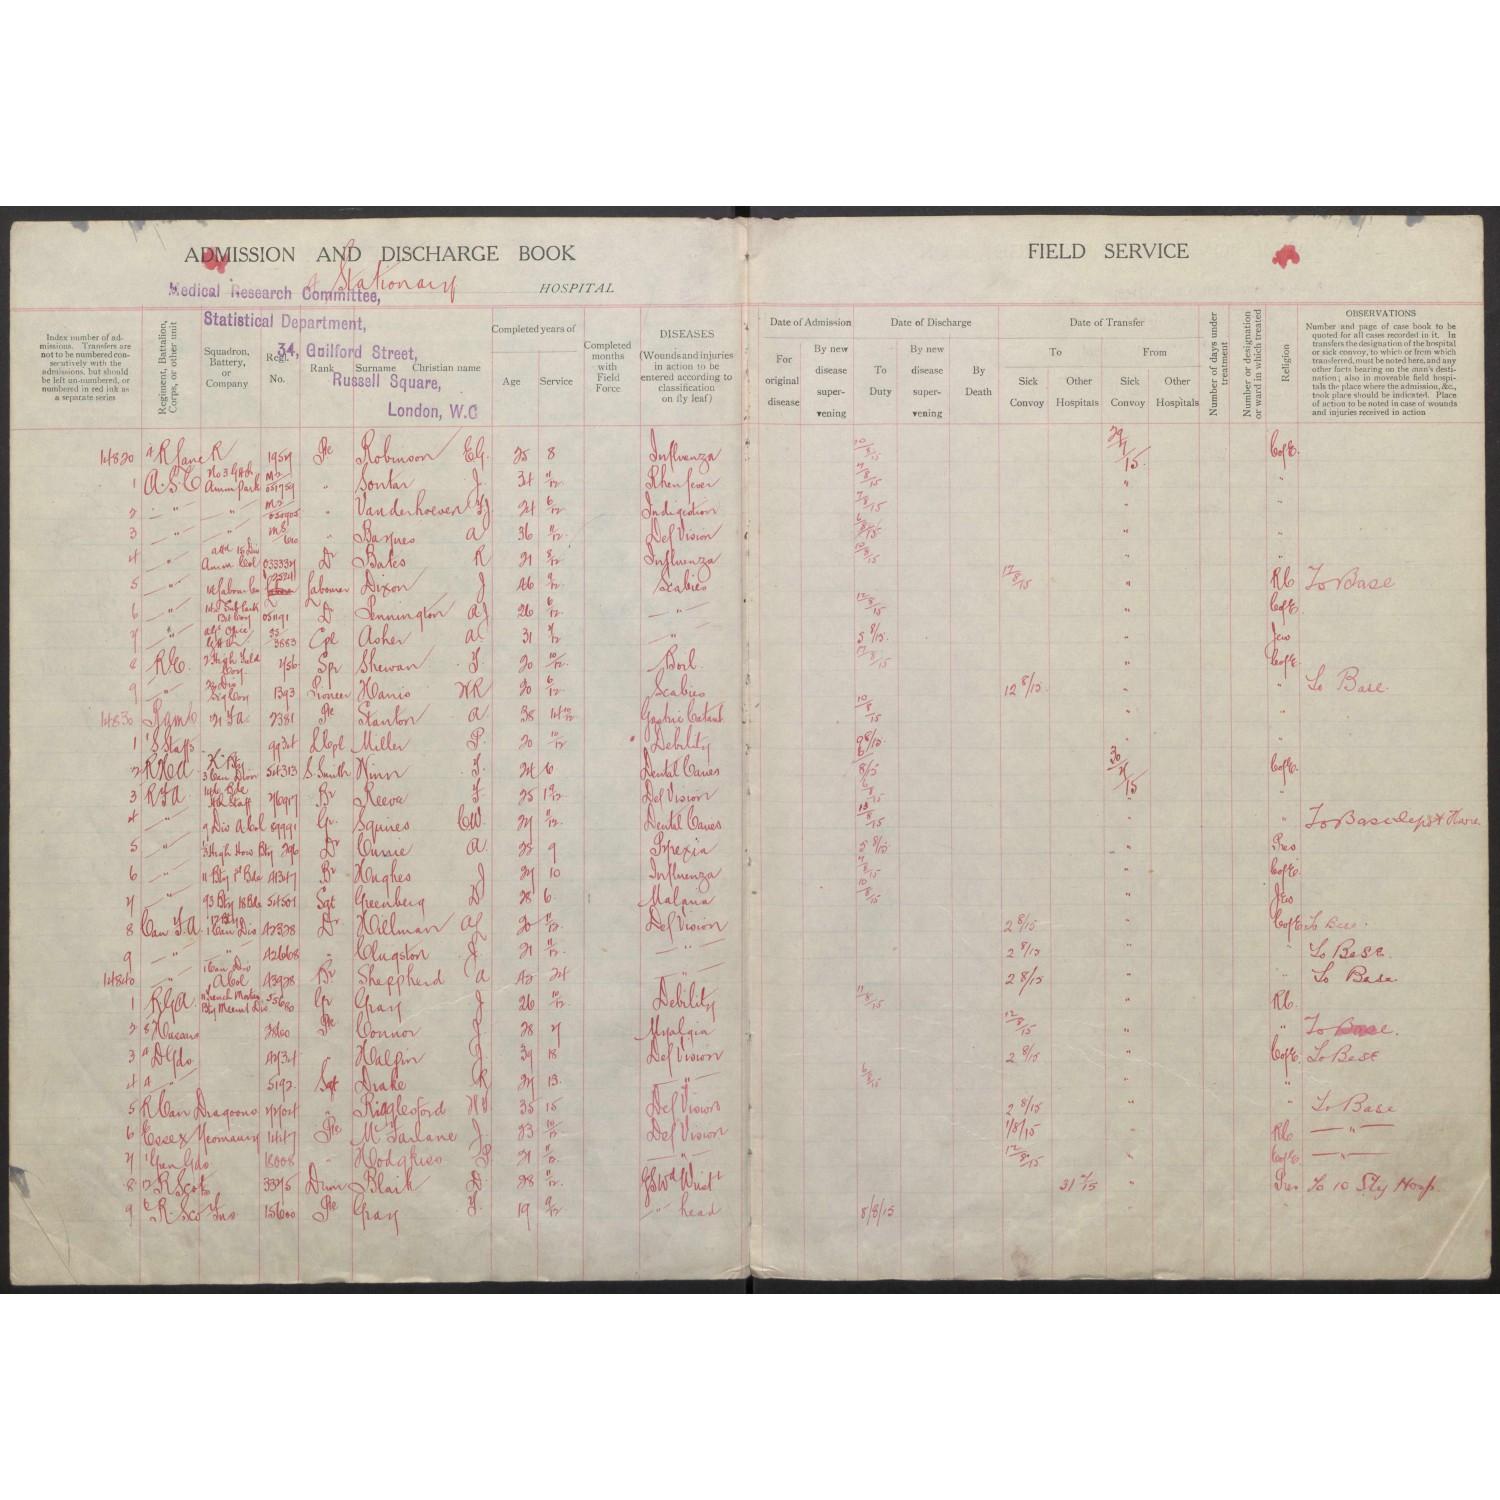 ADMISSION AND DISCHARGE BOOK
FIELD SERVICE
Stationary HOSPITAL
Medical Research Committee,
Statistical Department,
34, Guilford Street,
Russell Square,
London, W.C
Index number of admissions. Transfers are not to be numbered consecutively with the admissions, but should be left un-numbered, or numbered in red ink as a separate series
Regiment, Battalion, Corps, or other unit
Squadron, Battery, or Company
Regl. No.
Rank Surname Christian name
Completed years of
Age Service
Completed months with Field Force
DISEASES
(Wounds and injuries in action to be entered according to classification on fly leaf)
Date of Admission
For original disease
By new disease supervening
Date of Discharge
To Duty
By new disease supervening
By Death
Date of Transfer
To From
Sick Convoy Other Hospitals Sick Convoy Other Hospitals
Number of days under treatment
Number or designation of ward in which treated
Religion
OBSERVATIONS
Number and page of case book to be quoted for all cases recorded in it. In transfers the designation of the hospital or sick convoy, to which or from which transferred, must be noted here, and any other facts bearing on the man's destination; also in moveable field hospitals the place where the admission, &c., took place should be indicated. Place of action to be noted in case of wounds and injuries received in action
14820 4 R Lanc R 1957 Pte Robinson EG. 25 8 Influenza 10/8/15 29/7/15 CofE.
1 A.S.C No 3 GHQ Amm Park M2/051759 " Sontar J. 34 11/12 Rheu fever "
2 " " M2/050905 " Vanderhoeven 24 6/12 Indigestion "
3 " " " Barnes A 36 11/12 Def Vision "
4 " Amm Col 033334 Dr Bates R 21 8/12 Influenza "
5 " Labourer Dixon J 46 9/12 Scabies 12/8/15 " RC To Base
6 " 051191 Dr Pennington AJ 26 6/12 " 12/8/15 " CofE.
7 " 3883 Cpl Asher A. 31 " 5 8/15 " Jew
8 R.E. 2 High Field Coy 756 Spr Shewan J. 20 10/12 Boil. " CofE.
9 " Sig Coy 1393 Pioneer Harris WR 20 6/12 Scabies 12 8/15 " " To Base.
14830 Ramc 21 FA 2381 Pte Stanton A. 38 14 10/12 Gastric Catarrh 10/8/15 " "
1 1 S Staffs 9934 LCpl Miller P. 20 10/12 Debility " "
2 RHA 54313 S Smith Winn F. 24 6 Dental Caries 30/7/15 CofE.
3 RFA 76917 Br Reeve F. 25 1 9/12 Def Vision " "
4 " 9 Div A Col 89991 Gr. Squires CW. 24 11/12 Dental Caries 13/8/15 " " To Base depot Havre
5 " 3 High How Bty 296 Dr Currie A. 25 9 Pyrexia 5 8/15 " Pres
6 " 11 Bty 1st Bde 41347 Br Hughes J 24 10 Influenza " CofE.
7 " 93 Bty 18 Bde 54501 Sgt Greenberg D 28 6. Malaria 10/8/15 " Jew
8 Can F.A. 1 Can Div 42328 Dr. Hillman AL 20 11/12 Def Vision 2 8/15 " CofE To Base.
9 " " 42668 " Clugston J. 21 11/12 " 2 8/15 " " To Base.
14840 " 1 Can Div A Col 43928 Br Shepherd A 42 24 " 2 8/15 " " To Base
1 RGA. Trench Mortar Bty Meerut Div 35680 Gr Gray J 26 10/12 Debility 11/8/15 " RC.
2 8 Hussars 3860 Pte Connor J. 28 7 Myalgia 12/8/15 " " To Base.
3 4 D Gds 4734 " Halpin J. 39 18 Def Vision 2 8/15 " CofE. To Base
4 4 " 5192. Sgt Drake R 27 13. " 6/8/15 " "
5 R Can Dragoons " Rigglesford 35 15 Def Vision 2 8/15 " To Base
6 Essex Yeomanry 1447 Pte McFarlane J. 23 10/12 Def Vision 1/8/15 " RC "
7 1 Gren Gds 18008 " Hodgkiss P. 21 11/12 " 12/8/15 " CofE "
8 12 R Scots 3395 Drum Blair D. 28 11/12. GSWd Wrist 31 7/15 " Pres To 10 Sty Hosp.
9 6 R. Sco Fus 15600 Pte Gray F. 19 9/12 " head 8/8/15